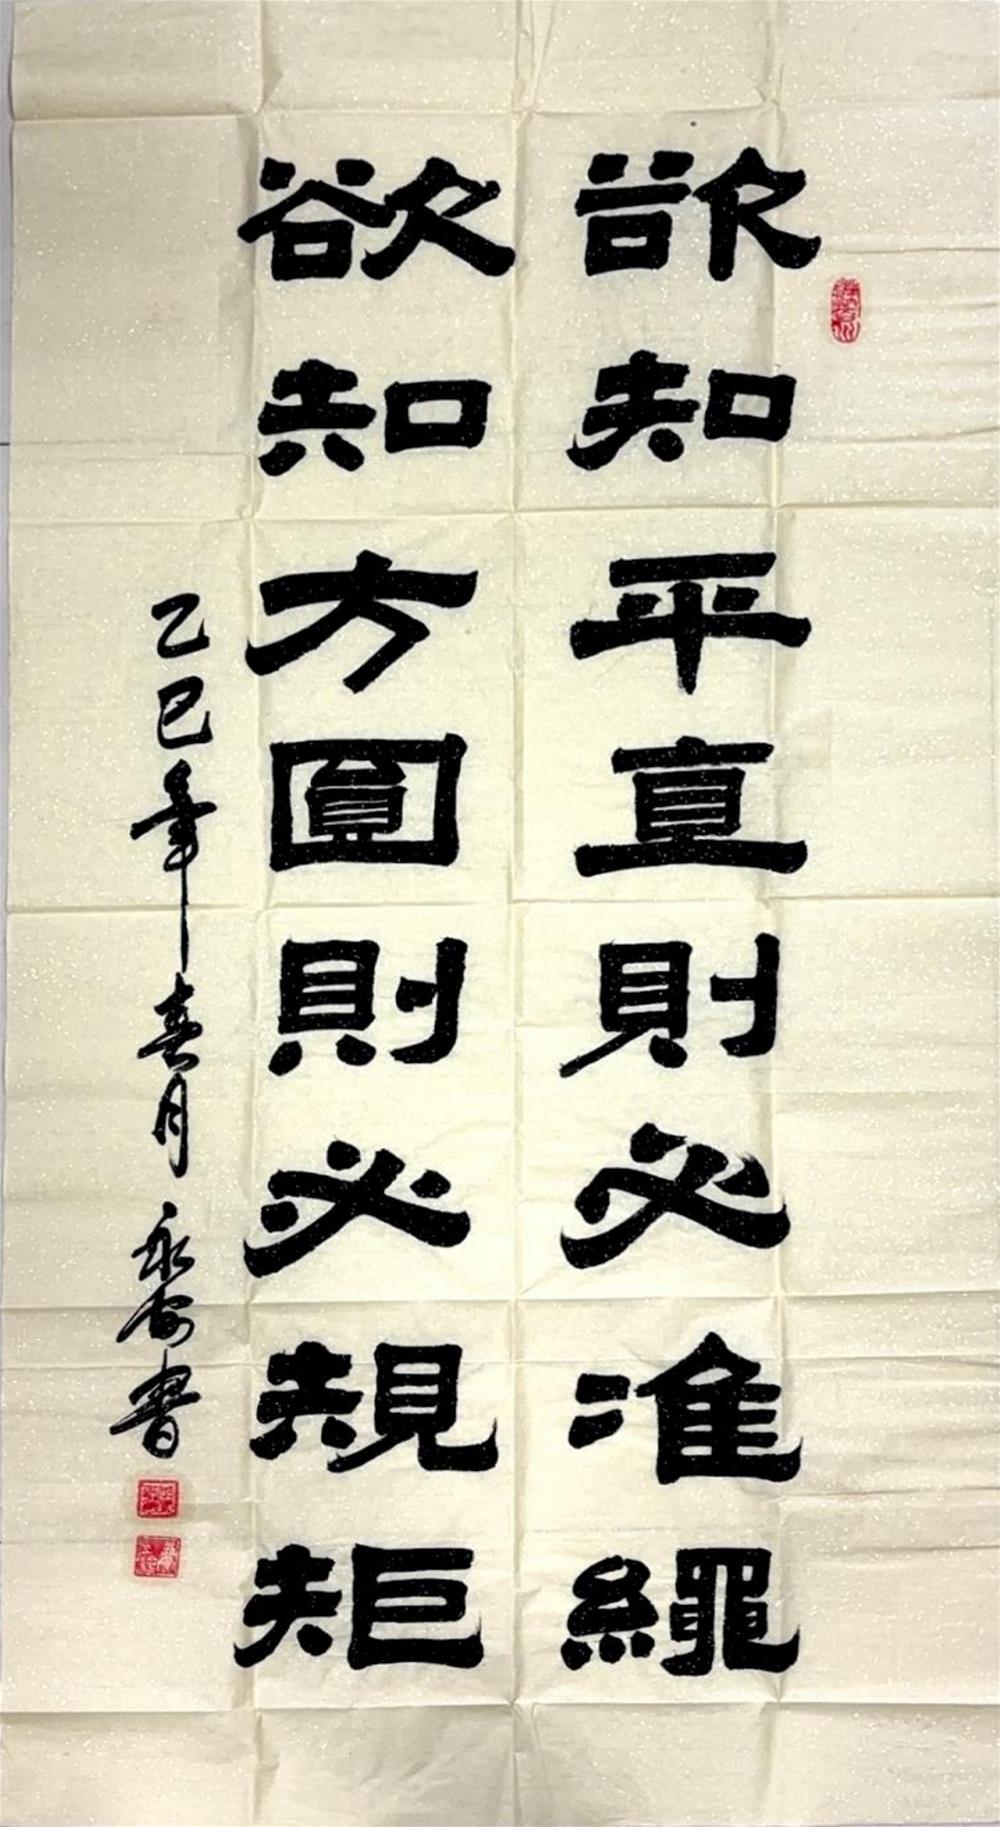 欲知平直則必准繩
欲知方圓則必規矩
乙巳年春月永安書